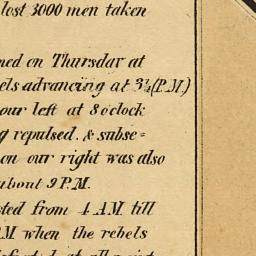 lost 3000 men taken
ned on Thursday at
els advancing at 3¾(P.M.)
our left at 8 oclock
g repulsed, & subse=
on our right was also
about 9 P.M.
sted from 4 A.M. till
M when the rebels